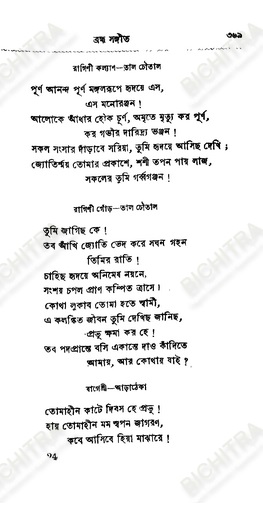 ব্রহ্ম সঙ্গীত ৩৬৯
রাগিণী কল্যাণ—তাল চৌতাল
পূর্ণ আনন্দ পূর্ণ মঙ্গলরূপে হৃদয়ে এস,
এস মনোরঞ্জন!
আলোকে আঁধার হোক চূর্ণ, অমৃতে মৃত্যু কর পূর্ণ,
কর গভীর দারিদ্র্য ভঞ্জন!
সকল সংসার দাঁড়াবে সরিয়া, তুমি হৃদয়ে আসিছ দেখি;
জ্যোতির্ম্ময় তোমার প্রকাশে, শশী তপন পায় লাজ,
সকলের তুমি গর্ব্বগঞ্জন!
রাগিণী গৌড়—তাল চৌতাল
তুমি জাগিছ কে!
তব আঁখি জ্যোতি ভেদ করে সঘন গহন
তিমির রাতি!
চাহিছ হৃদয়ে অনিমেষ নয়নে,
সংশয় চপল প্রাণ কম্পিত ত্রাসে।
কোথা লুকাব তোমা হতে স্বামী,
এ কলঙ্কিত জীবন তুমি দেখিছ জানিছ,
প্রভু ক্ষমা কর হে!
তব পদপ্রান্তে বসি একান্তে দাও কাঁদিতে
আমায়, আর কোথায় যাই?
বাগেশ্রী—আড়াঠেকা
তোমাহীন কাটে দিবস হে প্রভু!
হায় তোমাহীন মম স্বপন জাগরণ,
কবে আসিবে হিয়া মাঝারে!
BICHITRA